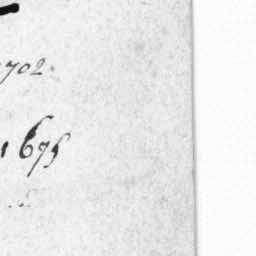 1702.
1675